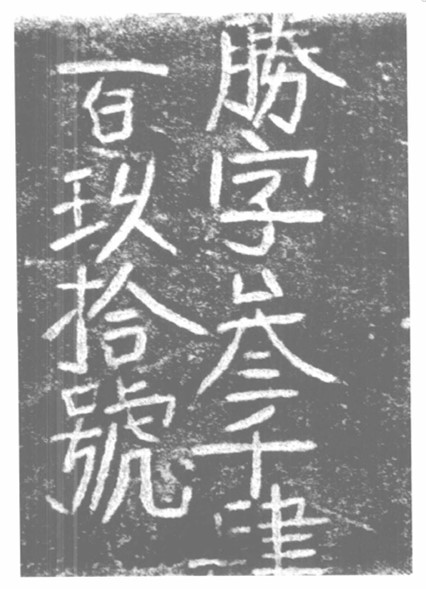 勝字叁千肆
百玖拾號